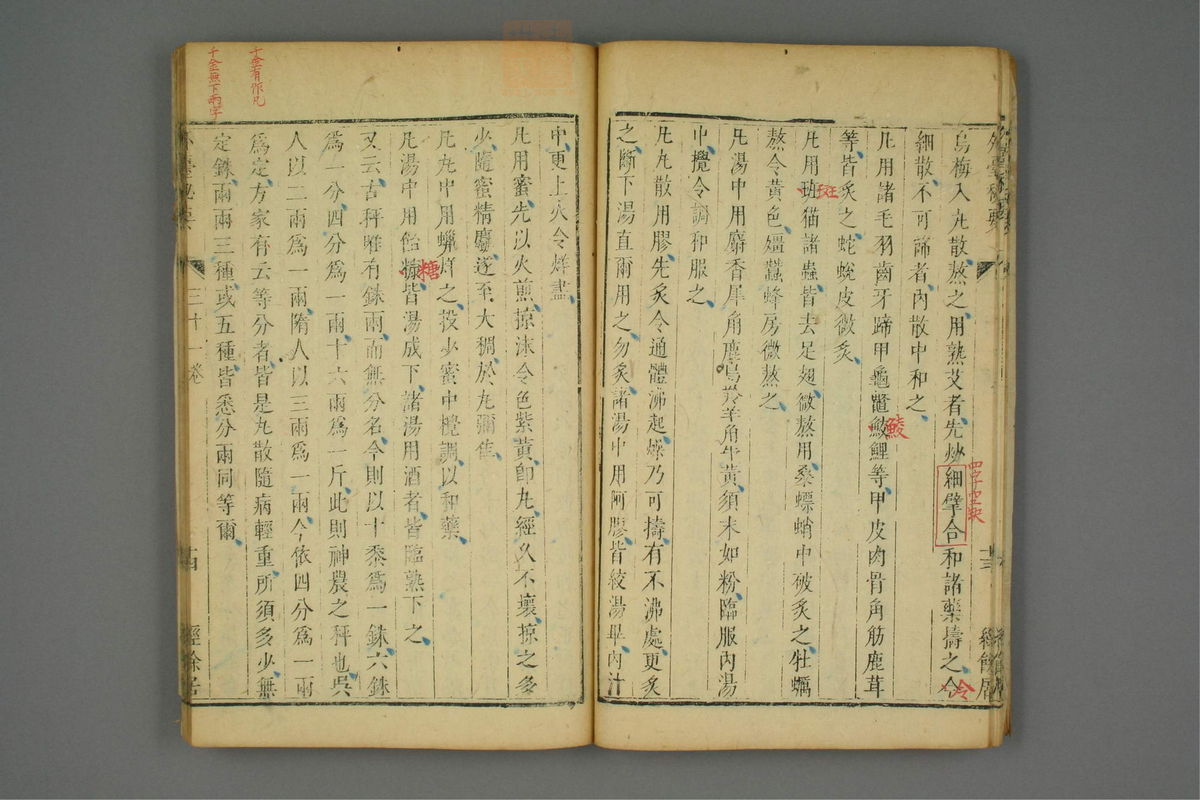 外臺秘要
烏梅入丸散熬之用熟艾者先炒細擘合和諸藥擣之令
細散不可篩者內散中和之
凡用諸毛羽齒牙蹄甲龜鼈鯪鯉等甲皮肉骨角筋鹿茸
等皆炙之蛇蛻皮微炙
凡用斑猫諸蟲皆去足翅微熬用桑螵蛸中破炙之牡蠣
熬令黃色殭蠶蜂房微熬之
凡湯中用麝香犀角鹿角羚羊角牛黃須末如粉臨服內湯
中攪令調和服之
凡丸散用膠先炙令通體沸起燥乃可擣有不沸處更炙
之斷下湯直爾用之勿炙諸湯中用阿膠皆絞湯畢內汁
中更上火令烊盡
凡用蜜先以火煎掠沫令色紫黃卽丸經久不壞掠之多
少隨蜜精麤遂至大稠於丸彌佳
凡丸中用蠟烊之投少蜜中攪調以和藥
凡湯中用飴糖皆湯成下諸湯用酒者皆臨熟下之
又云古秤唯有銖兩而無分名今則以十黍爲一銖六銖
爲一分四分爲一兩十六兩爲一斤此則神農之秤也吳
人以二兩爲一兩隋人以三兩爲一兩今依四分爲一兩
爲定方家有云等分者皆是丸散隨病輕重所須多少無
定銖兩兩三種或五種皆悉分兩同等爾
外臺秘要
三十一卷
十四
經餘居
四字空缺
鯪
斑
糖
冷
千金有作凡
千金無下兩字
十三
經餘居